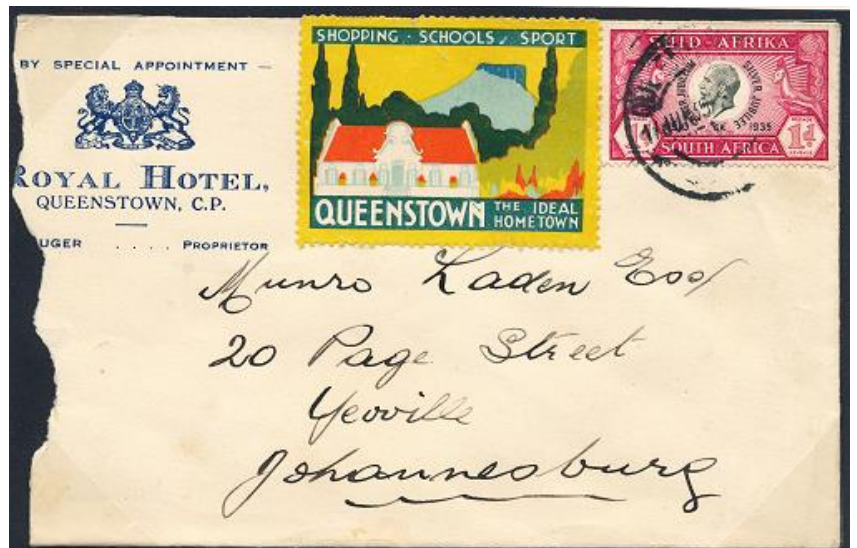 BY SPECIAL APPOINTMENT —
ROYAL HOTEL,
QUEENSTOWN, C.P.
UGER . . . . PROPRIETOR
SHOPPING · SCHOOLS · SPORT
QUEENSTOWN THE IDEAL
HOME TOWN
SUID-AFRIKA
SILVER JUBILEE
1935
1d 1d
SOUTH AFRICA
Munro Laden Esq
20 Page Street
Yeoville
Johannesburg